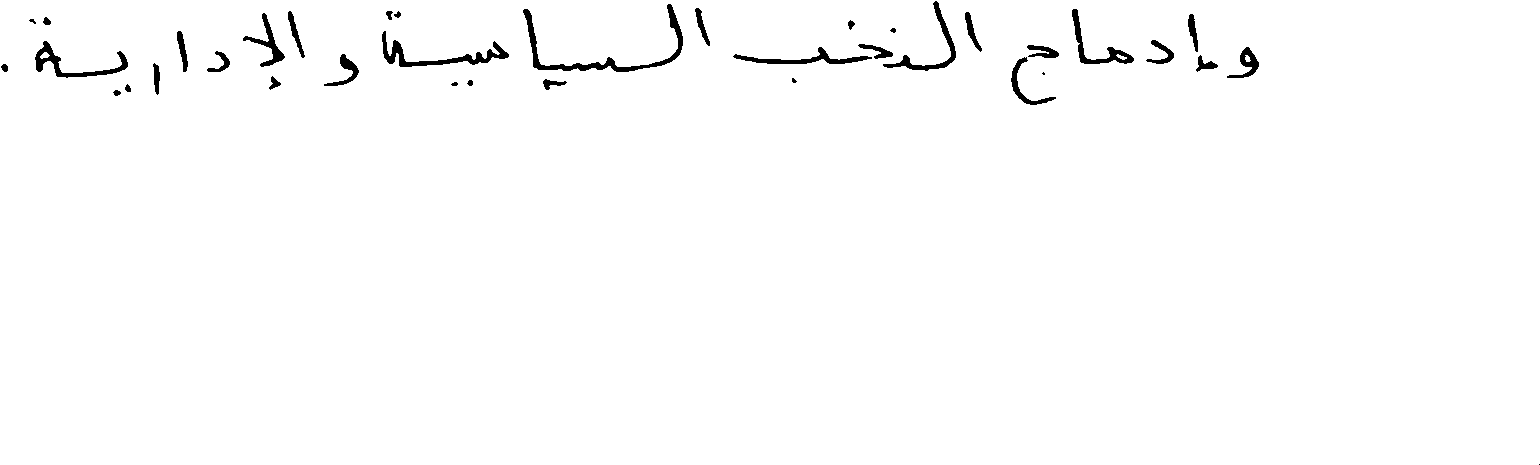 وإدماج النخب السياسية والإدارية.